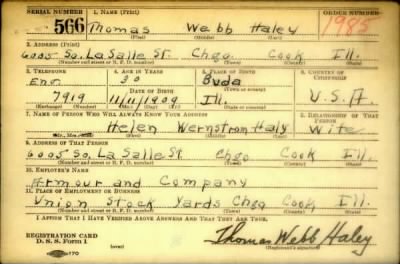 SERIAL NUMBER 1. NAME (Print) ORDER NUMBER
566 Thomas Webb Haley 1985
(First) (Middle) (Last)
2. ADDRESS (Print)
6005 So. La Salle St. Chgo Cook Ill.
(Number and street or R. F. D. number) (Town) (County) (State)
3. TELEPHONE 4. AGE IN YEARS 5. PLACE OF BIRTH 6. COUNTRY OF CITIZENSHIP
Eng 30 Buda
DATE OF BIRTH (Town or county)
7919 11/11/1909 Ill. U.S.A.
(Exchange) (Number) (Mo.) (Day) (Yr.) (State or country)
7. NAME OF PERSON WHO WILL ALWAYS KNOW YOUR ADDRESS 8. RELATIONSHIP OF THAT PERSON
Helen Wernstrom Haly Wife
(Mr., Mrs., Miss) (First) (Middle) (Last)
9. ADDRESS OF THAT PERSON
6005 So, La Salle St. Chgo Cook Ill.
(Number and street or R. F. D. number) (Town) (County) (State)
10. EMPLOYER'S NAME
Armour and Company
11. PLACE OF EMPLOYMENT OR BUSINESS
Union Stock Yards Chgo Cook Ill.
(Number and street or R. F. D. number) (Town) (County) (State)
I AFFIRM THAT I HAVE VERIFIED ABOVE ANSWERS AND THAT THEY ARE TRUE.
REGISTRATION CARD
D. S. S. Form 1 (over) Thomas Webb Haley
(Registrant's signature)